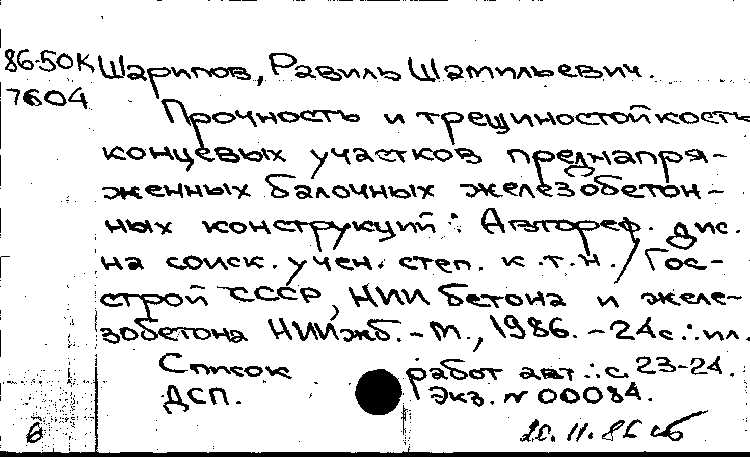 86-50К Шарипов, Равиль Шамильевич.
7604
Прочность и трещиностойкость
концевых участков преднапря-
женных балочных железобетон-
ных конструкций : Автореф. дис.
на соиск. учен. степ. к.т.н. / Гос-
строй СССР, НИИ бетона и желе-
зобетона НИИжб. - М., 1986. - 24с.:ил.
Список работ авт.:с. 23-24.
ДСП. Экз. № 00084.
б 20.11.86